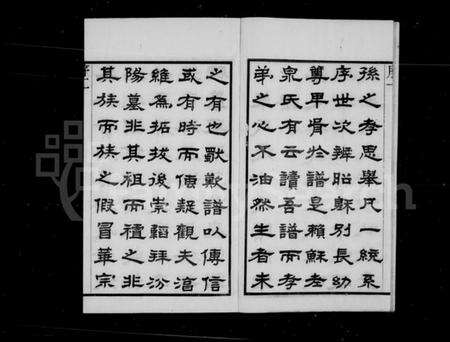 孫之孝思舉凡一統系
序世次辨昭穌別長幼
尊卑胥於譜是賴蘇老
泉氏有云讀吾譜而孝
弟之心不油然生者未
之有也歟歟譜以傳信
或有時而傳疑觀夫滄
維為拓拔後崇韜拜汾
陽墓非其祖而禮之非
其族而族之假冒華宗